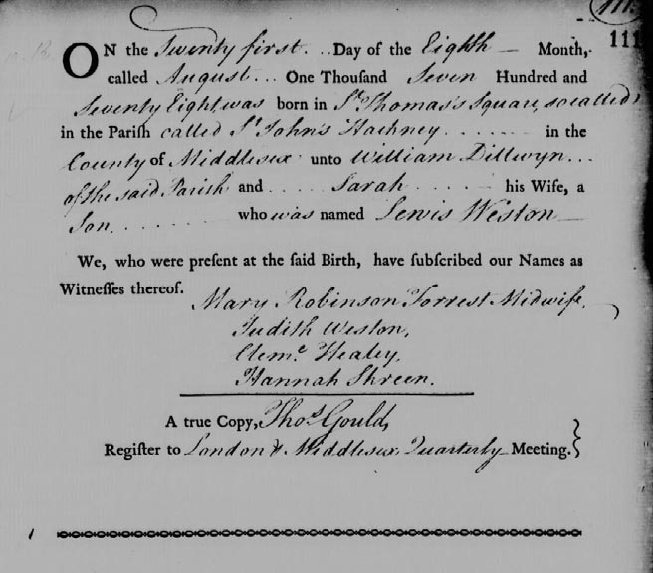 111
111
ON the Twenty first .. Day of the Eighth — Month,
called August ... One Thouſand Seven Hundred and
Seventy Eight was born in St. Thomas's Square, so called
in the Pariſh called St. John's Hackney ....... in the
County of Middlesex unto William Dillwyn ...
of the said Parish and .... Sarah ..... his Wife, a
Son ....... who was named Lewis Weston —
We, who were preſent at the ſaid Birth, have ſubſcribed our Names as
Witneſſes thereof.
Mary Robinson Forrest Midwife.
Judith Weston,
Clemt. Healey,
Hannah Skreen.
A true Copy, Thos. Gould,
Regiſter to London & Middlesex Quarterly Meeting.